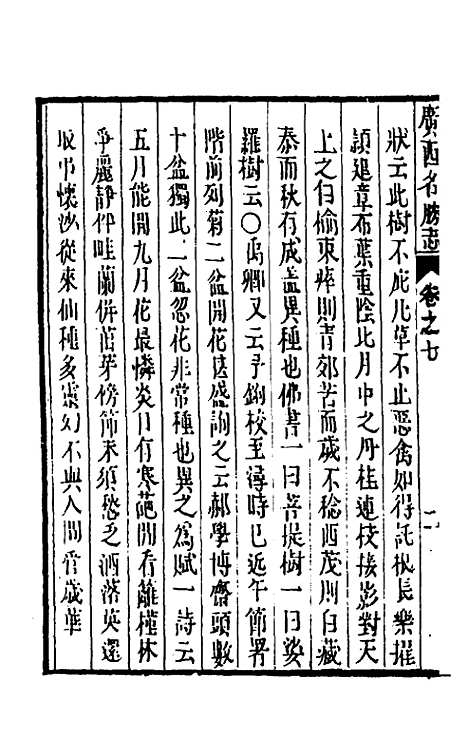 廣西名勝志 卷之七 二
狀云此樹不庇凡草不止惡禽如得託根長樂擢
頴建章布葉重陰比月中之丹桂連枝接影對天
上之白榆東瘁則青郊苦而歲不稔西茂則白藏
泰而秋有成蓋異種也佛書一曰菩提樹一曰娑
羅樹云〇禹卿又云予鉤校至潯時已近午節署
階前列菊二盆開花甚盛詢之云郝學博齋頭數
十盆獨此二盆忽花非常種也異之為賦一詩云
五月能開九月花最憐炎日有寒葩開看籬槿休
爭麗靜伴畦蘭併茁芽傍節未須愁乏酒落英還
取弔懷沙從來仙種多虛幻不與人間管歲華